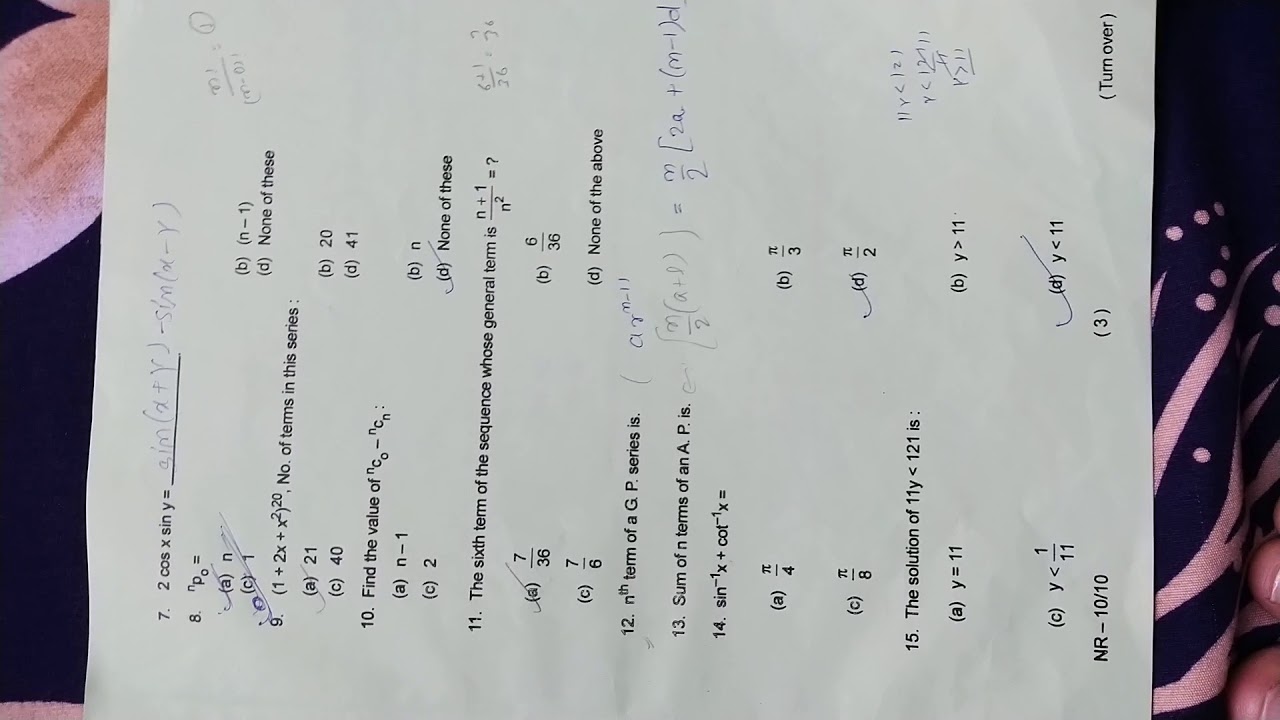 7. 2 cos x sin y = sin(x + y) - sin(x - y)
8. ⁿp₀ =
(a) n (b) (n – 1)
(c) 1 (d) None of these
n!/(n-0)! = 1
9. (1 + 2x + x²)²⁰, No. of terms in this series :
(a) 21 (b) 20
(c) 40 (d) 41
10. Find the value of ⁿc₀ – ⁿcₙ :
(a) n – 1 (b) n
(c) 2 (d) None of these
11. The sixth term of the sequence whose general term is (n + 1)/n² = ?
6+1/36 = 7/36
(a) 7/36 (b) 6/36
(c) 7/6 (d) None of the above
12. nᵗʰ term of a G. P. series is. ( arⁿ⁻¹)
13. Sum of n terms of an A. P. is. [n/2(a+l)] = n/2[2a + (n-1)d
14. sin⁻¹x + cot⁻¹x =
(a) π/4 (b) π/3
(c) π/8 (d) π/2
15. The solution of 11y < 121 is :
11y < 121
(a) y = 11 (b) y > 11
(c) y < 1/11 (d) y < 11
NR – 10/10 (3) (Turn over)